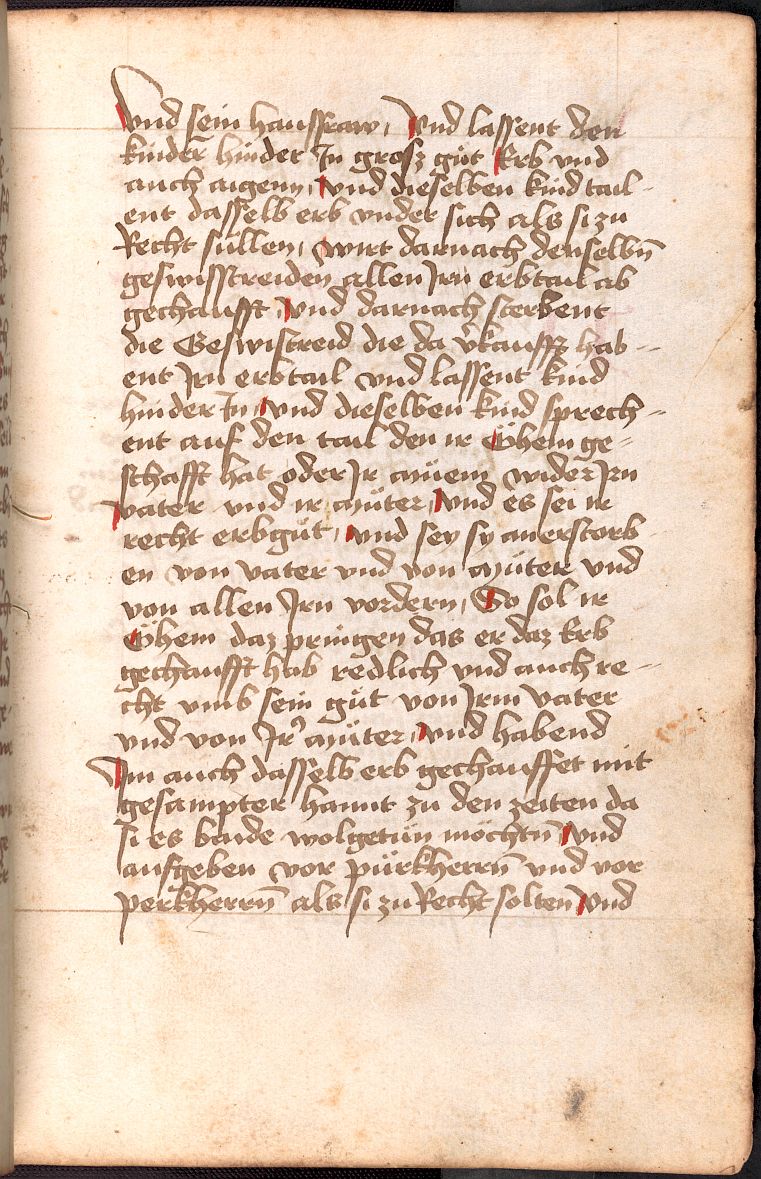 Vnd sein hausfraw, Vnd lassent den
kinder hinder In grosz güt Erb vnd
auch aigenn, vnd dieselben kind tail-
ent dasselb erb vnder sich als si zu
Recht süllen, wirt darnach denselbn̄
geswisstreiden allen Irn erbtail ab
gechaufft, vnd darnach sterbent
die Geswistreid die da v̄kaufft hab-
ent Irn erbtail vnd lassent kind
hinder In, vnd dieselben kind sprech-
ent auf den tail den ir Öhem ge-
schafft hat oder Ir müem wider Irn
vater vnd ir müter, vnd es sei ir
recht erbgüt, vnd sey sy anerstorb-
en von vater vnd von müter vnd
von allen Irn vordern, So sol ir
Öhem daz pringen das er daz Erb
gechaufft hab redlich vnd auch re-
cht vmb sein güt von Irm vater
vnd von Ir müter, vnd habend
Im auch dasselb erb gechauffet mit
gesampter hannt zu den zeiten da
si es baide wolgetün möchtn̄ vnd
aufgeben vor pürkherrn̄ vnd vor
perkherrn̄ als si zu Recht solten vnd